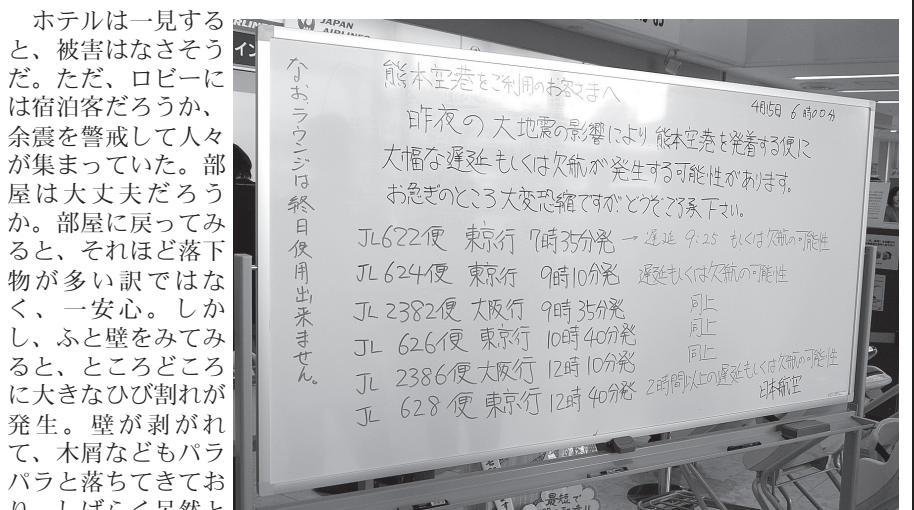 ホテルは一見する
と、被害はなさそう
だ。ただ、ロビーに
は宿泊客だろうか、
余震を警戒して人々
が集まっていた。部
屋は大丈夫だろう
か。部屋に戻ってみ
ると、それほど落下
物が多い訳ではな
く、一安心。しか
し、ふと壁をみてみ
ると、ところどころ
に大きなひび割れが
発生。壁が剥がれ
て、木屑などもパラ
パラと落ちてきてお
り、しばらく呆然と
JAPAN
AIRLINES
熊本空港をご利用のお客さまへ
4月15日 6時00分
昨夜の大地震の影響により熊本空港を発着する便に
大幅な遅延もしくは欠航が発生する可能性があります。
お急ぎのところ大変恐縮ですがどうぞご了承下さい。
JL622便 東京行 7時35分発 → 遅延 9:25 もしくは欠航の可能性
JL624便 東京行 9時10分発 遅延もしくは欠航の可能性
JL2382便 大阪行 9時35分発 同上
JL 626便 東京行 10時40分発 同上
JL 2386便 大阪行 12時10分発 同上
JL 628便 東京行 12時40分発 2時間以上の遅延もしくは欠航の可能性
日本航空
なおラウンジは終日使用出来ません。
最短で